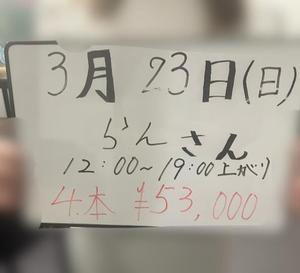 3月23日(日)
らんさん
12:00～19:00上がり
4本 ¥53,000